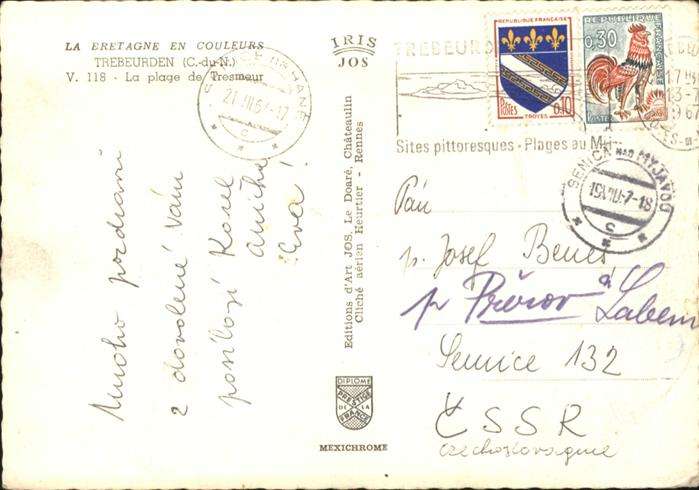 LA BRETAGNE EN COULEURS
TREBEURDEN (C.-du-N.)
V. 118 - La plage de Tresmeur
IRIS
JOS
Mnoho pozdravů
z dovolené Vám
posílají Karel
Anička
Eva!
Editions d'Art JOS, Le Doaré, Châteaulin
Cliché aérien Heurtier - Rennes
DIPLOME
PRESTIGE
DE LA
FRANCE
MEXICHROME
TREBEURD
Sites pittoresques - Plages au Mi
REPUBLIQUE FRANÇAISE
POSTES
0,10
TROYES
REPUBLIQUE
FRANÇAISE
0,30
POSTES
SENICA NAD MYJAVOU
C
Pán
p. Josef Beneš
Labem
Semice 132
ČSSR
Czechoslovaquie